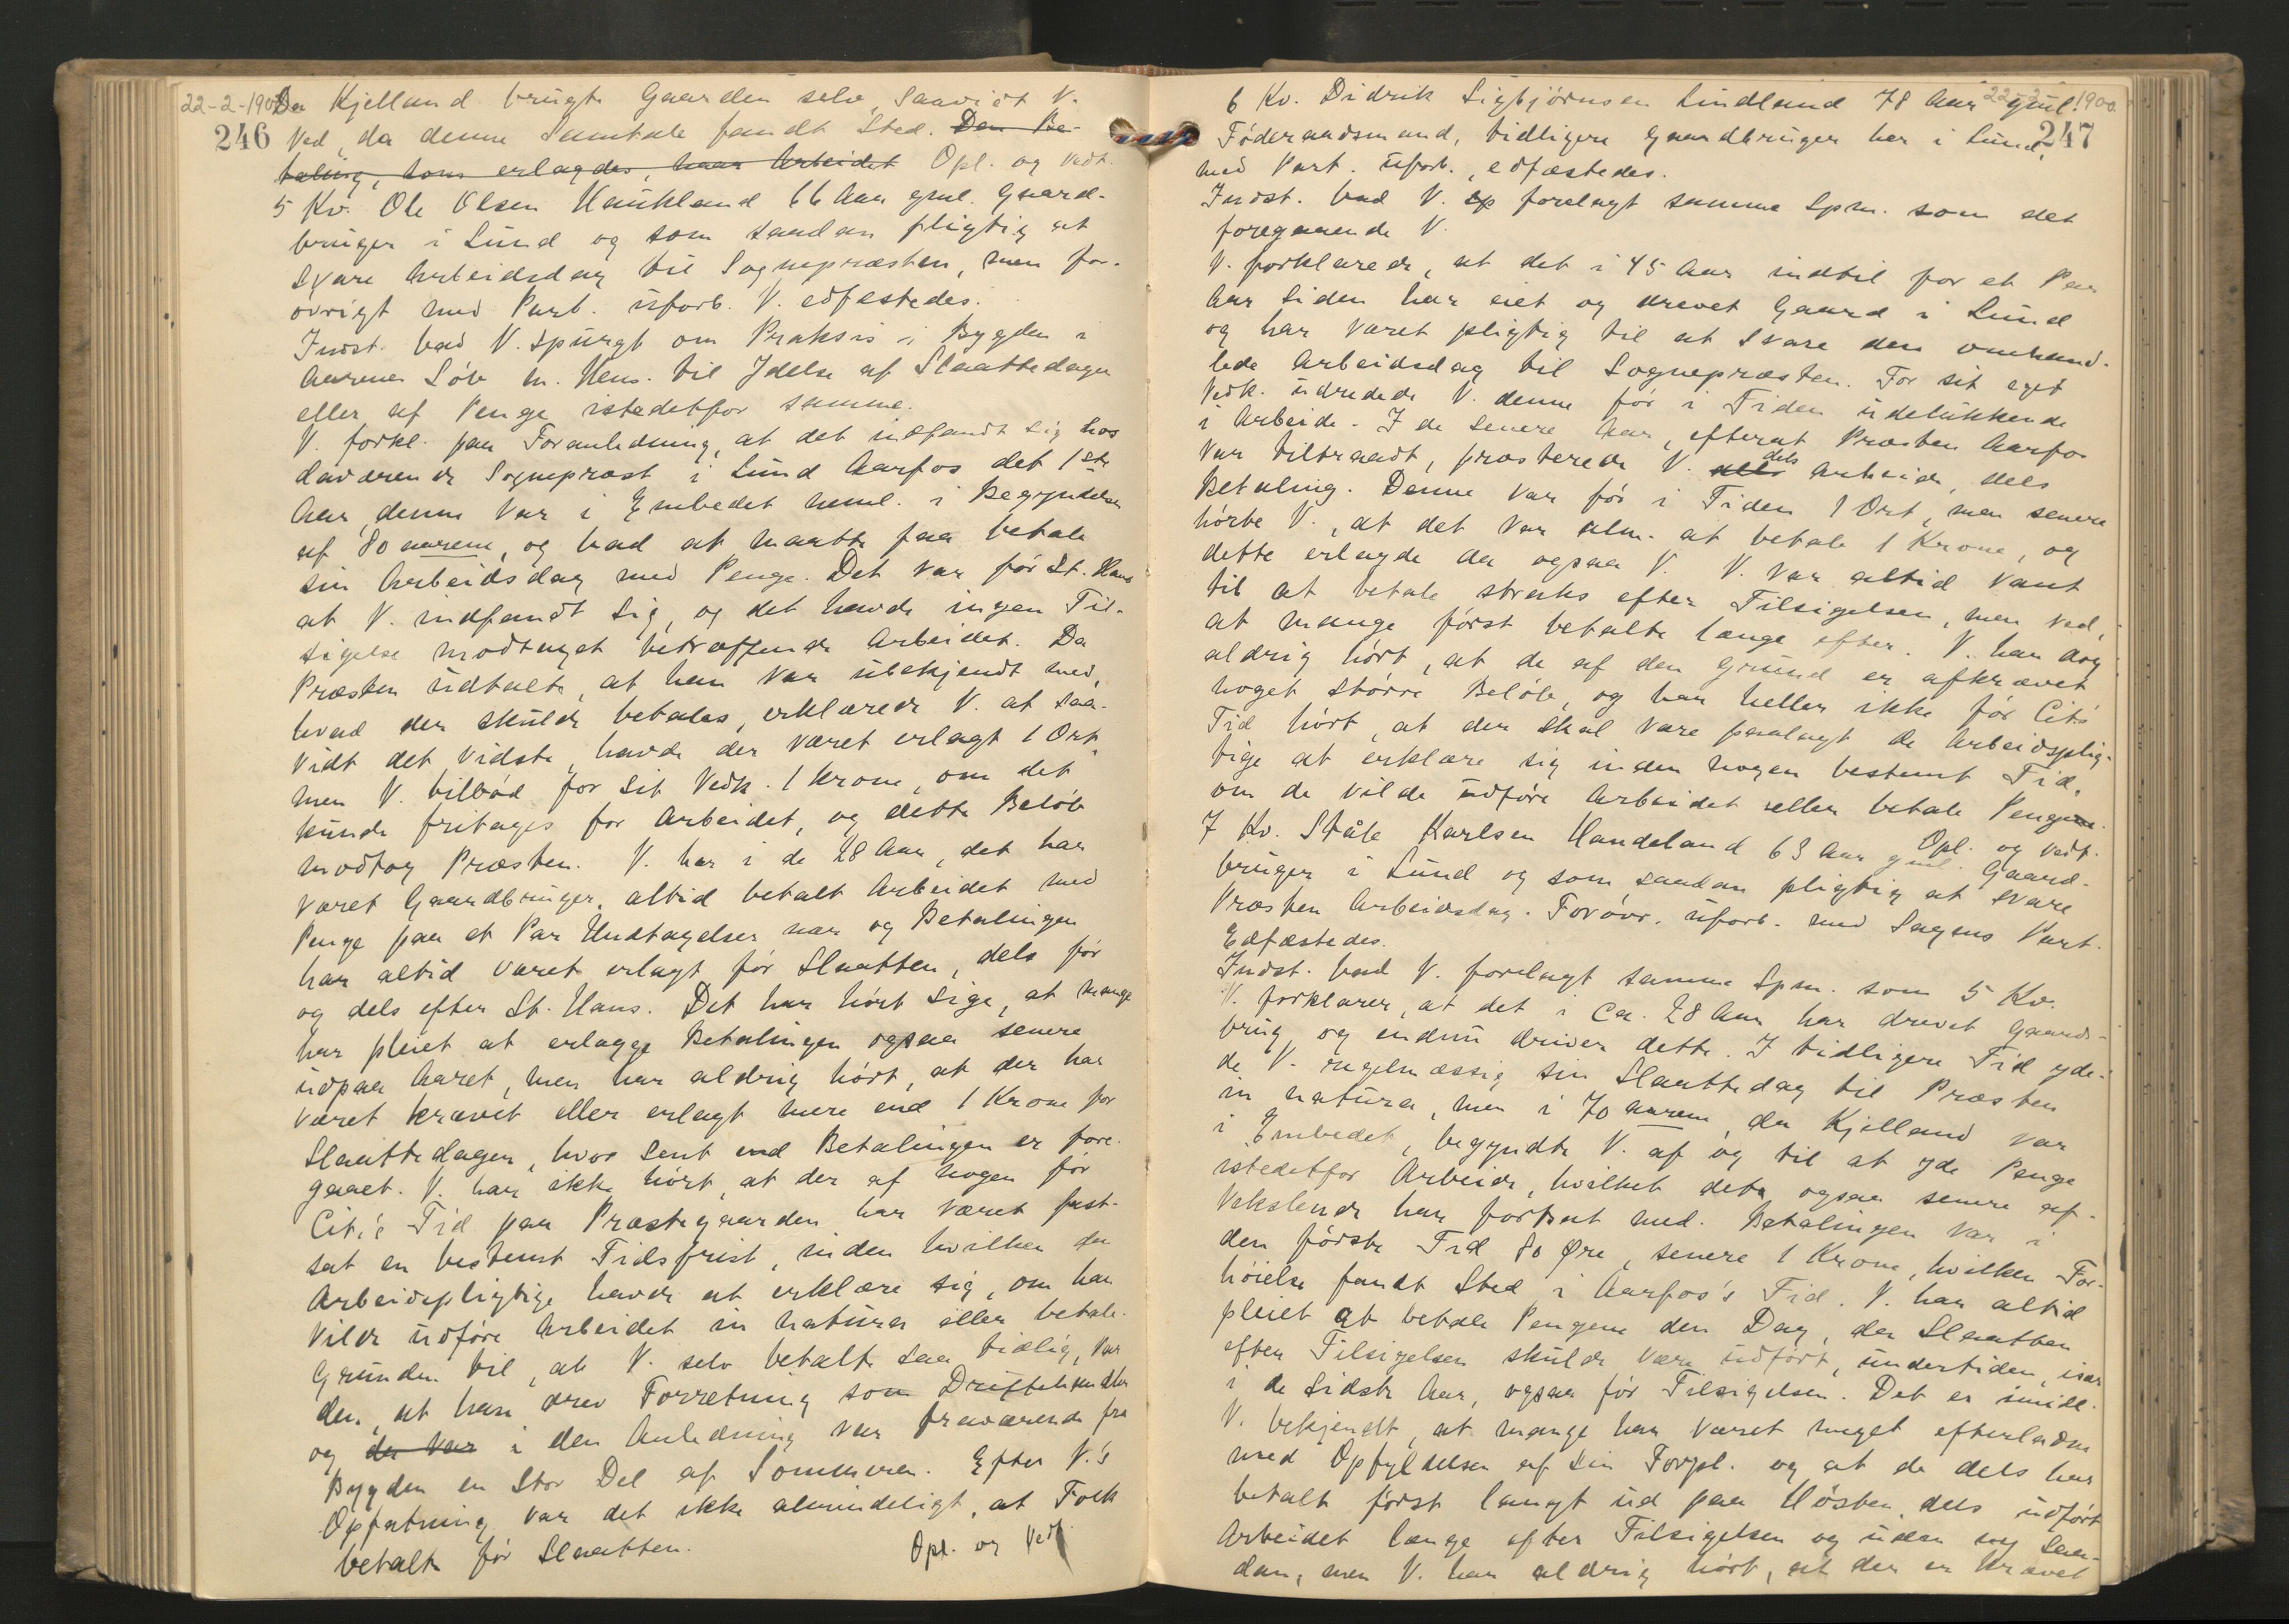 22-2-1900
246
Da Kjelland brugte Gaarden selv, saavidt V.
ved, da denne Samtale fandt Sted. Den Be-
taling, som erlagdes, har Arbeidet Opl. og vedt.
5 Kv. Ole Olsen Haukland 66 Aar gml. Gaard-
bruger i Lund og som saadan pligtig at
svare Arbeidsdag til Sognepræsten, men for-
øvrigt med Part. uforb. V. edfestedes.
Indst. bad V. spurgt om Praksis i Bygden i
Aarenes Løb m. Hens. til Ydelse af Slaattedage
eller af Penge istedetfor samme.
V. forkl. paa Foranledning, at det indfandt sig hos
daværende Sogneprest i Lund Aarfos det 1ste
Aar, denne var i Embedet neml. i Begyndelsen
af 80 aarene, og bad at maatte faa betale
sin Arbeidsdag med Penge. Det var før St. Hans
at V. indfandt sig, og det havde ingen Til-
sigelse modtaget betræffende Arbeidet. Da
Præsten udtalte, at han var ubekjendt med,
hvad der skulde betales, erklærede V. at saa-
vidt det vidste, havde der været erlagt 1 Ort,
men V. tilbød for sit Vedk. 1 Krone, om det
kunde fritages for Arbeidet, og dette Beløb
modtog Præsten. V. har i de 28 Aar, det har
været Gaardbruger, altid betalt Arbeidet med
Penge paa et Par Undtagelser nær og Betalingen
har altid været erlagt før Slaatten, dels før
og dels efter St. Hans. Det har hørt sige, at mange
har pleiet at erlægge Betalingen ogsaa senere
udpaa Aaret, men har aldrig hørt, at der har
været krævet eller erlagt mere end 1 Krone for
Slaattedagen, hvor sent end Betalingen er fore-
gaaet. V. har ikke hørt, at der af nogen før
Cit.'s Tid paa Præstegaarden har været fast-
sat en bestemt Tidsfrist, inden hvilken den
Arbeidspligtige havde at erklære sig, om han
vilde udføre Arbeidet in natura eller betale.
Grunden til, at V. selv betalte saa tidlig, var
den, at han drev Forretning som Driftehandler
og der var i den Anledning var fraværende fra
Bygden en stor Del af Sommeren. Efter V.'s
Opfatning var det ikke almindeligt, at Folk
betalte før Slaatten. Opl. og Vedt.
22-2-1900
247
6 Kv. Didrik Sigbjørnsen Lindland 78 Aar gml.
Føderaadsmand, tidligere Gaardbruger her i Lund,
med Part. uforb., edfæstedes.
Indst. bad V. forelagt samme Spm. som det
foregaaende V.
V. forklarede, at det i 45 Aar indtil for et Par
Aar siden har eiet og drevet Gaard i Lund
og har været pligtig til at svare den omhand-
lede Arbeidsdag til Sognepræsten. For sit eget
Vedk. udredede V. denne før i Tiden udelukkende
i Arbeide. I de senere Aar, efterat Præsten Aarfos
var tiltraadt, præsterede V. dels Arbeide, dels
Betaling. Denne var før i Tiden 1 Ort, men senere
hørte V., at det var alm. at betale 1 Krone, og
dette erlagde da ogsaa V. V. var altid vant
til at betale straks efter Tilsigelsen, men ved,
at mange først betalte længe efter. V. har dog
aldrig hørt, at de af den Grund er afkrævet
noget større Beløb, og har heller ikke før Cit's
Tid hørt, at der skal være paalagt de Arbeidsplig-
tige at erklære sig inden nogen bestemt Tid,
om de vilde udføre Arbeidet eller betale Penge.
Opl. og vedt.
7 Kv. Ståle Karlsen Handeland 63 Aar gml. Gaard-
bruger i Lund og som saadan pligtig at svare
Præsten Arbeidsdag. Forøvr. uforb. med Sagens Part.
Edfæstedes.
Indst. bad V. forelagt samme Spm. som 5 Kv.
V. forklarer, at det i ca. 28 Aar har drevet Gaards-
brug og endnu driver dette. I tidligere Tid yde-
de V. regelmæssig sin Slaattedag til Præsten
in natura, men i 70 aarene, da Kjelland var
i Embedet, begyndte V. af og til at yde Penge
istedetfor Arbeide, hvilket det ogsaa senere af-
vekslende har fortsat med. Betalingen var i
den første Tid 80 Øre, senere 1 Krone, hvilken For-
høielse fandt Sted i Aarfos's Tid. V. har altid
pleiet at betale Pengene den Dag, da Slaatten
efter Tilsigelsen skulde være udført, undertiden, især
i de sidste Aar, ogsaa før Tilsigelsen. Det er imidl.
V. bekjendt, at mange har været meget efterladne
med Opfyldelsen af sin Forpl. og at de dels har
betalt først langt ud paa Høsten, dels udført
Arbeidet længe efter Tilsigelsen og uden saa-
dan, men V. har aldrig hørt, at der er krævet